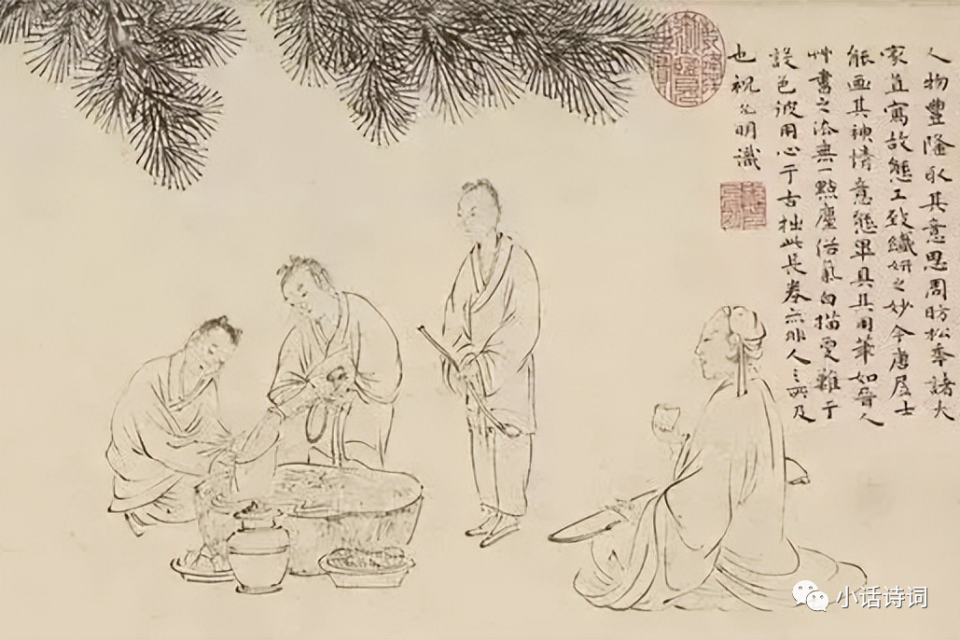 人物豐隆取其意思周昉松年諸大
家直寫故態工致纖妍之妙今唐居士
能画其神情意態畢具其用筆如晉人
艸書之法無一點塵俗氣白描更難于
設色彼用心于古拙此長卷亦非人之所及
也祝允明識
小话诗词